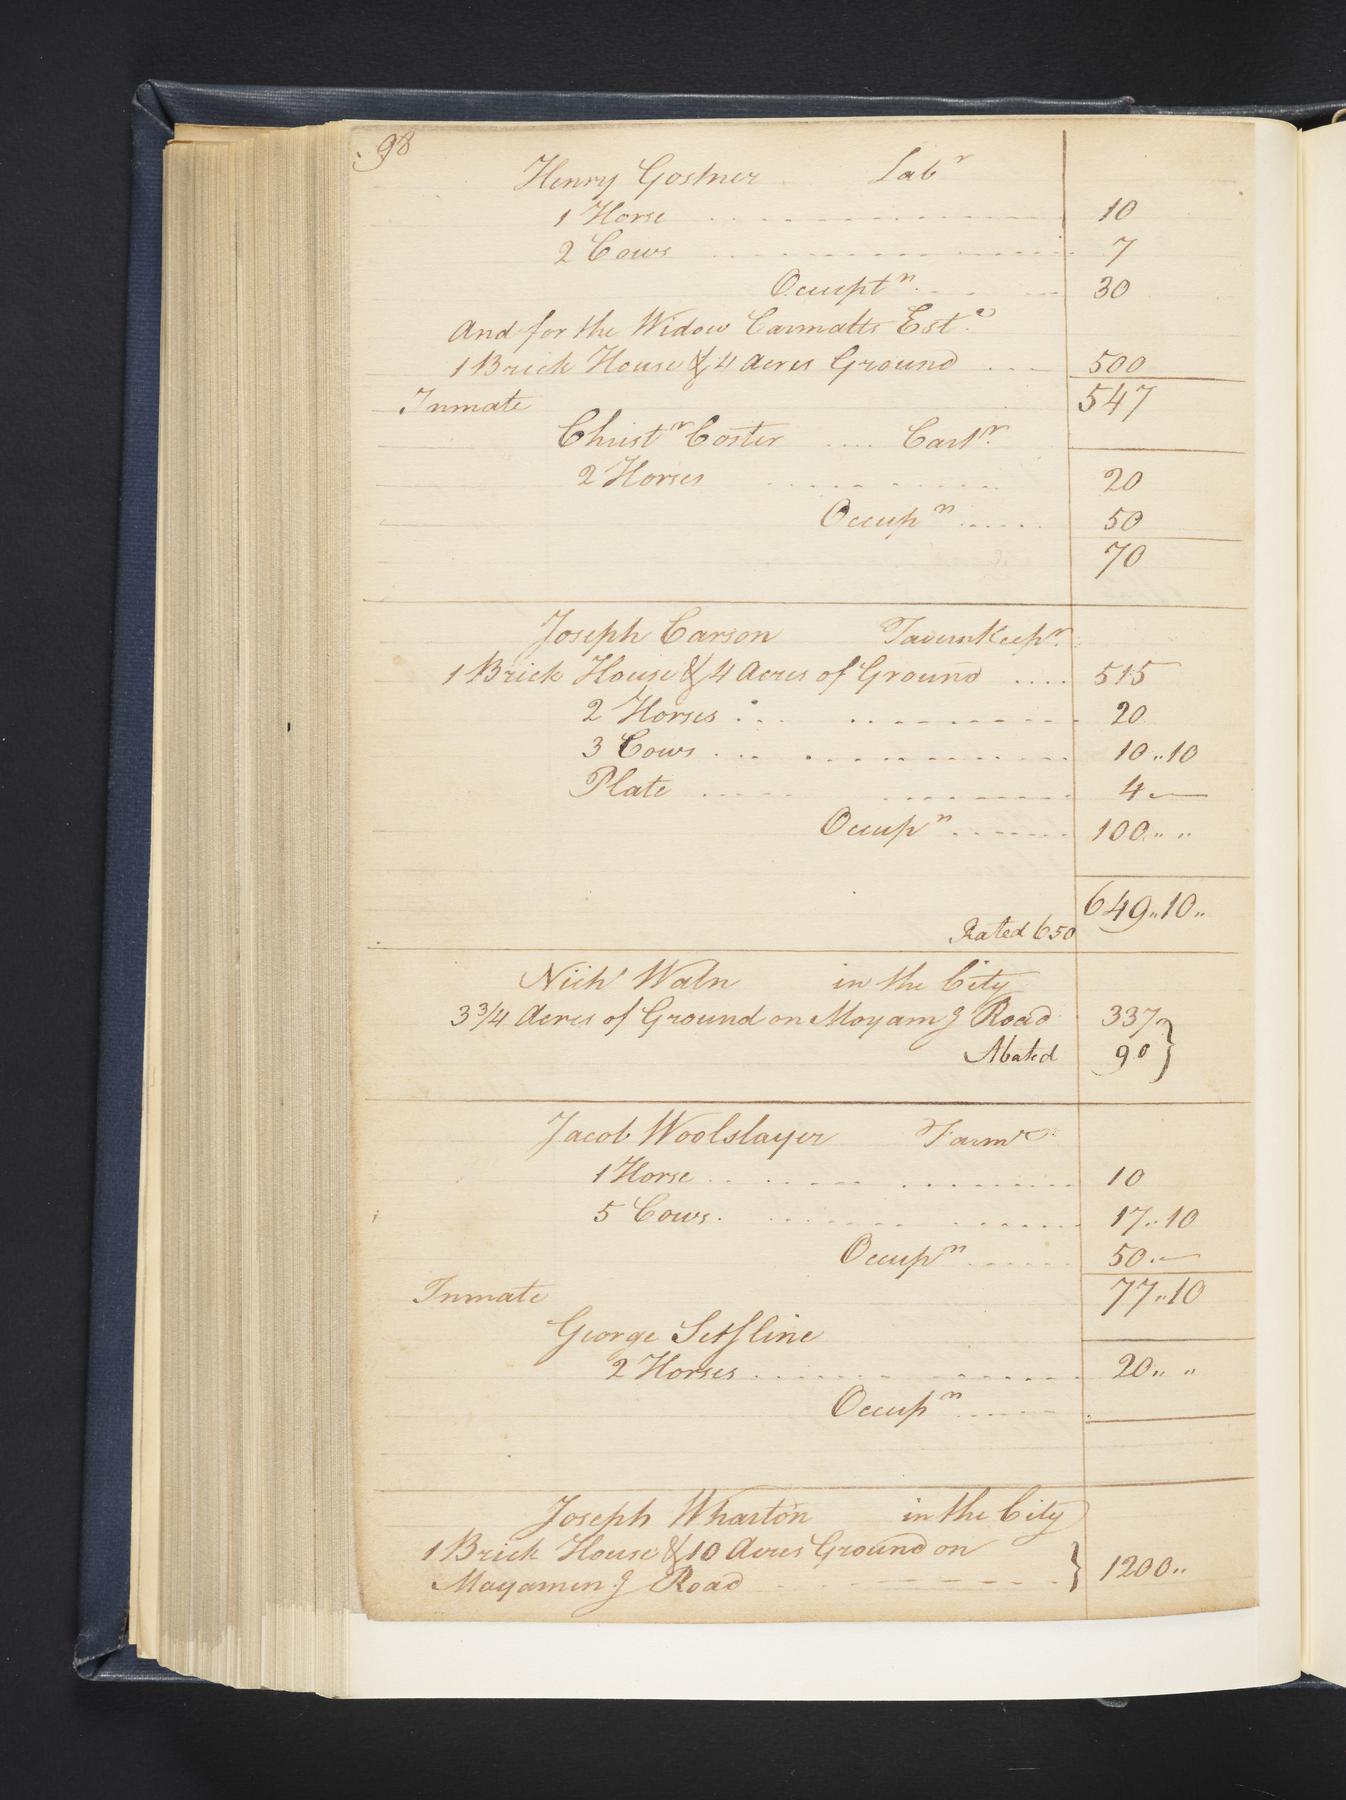 98
Henry Gostner Labr
1 Horse 10
2 Cows 7
Occuptn. 30
And for the Widow Carmatts Este.
1 Brick House & 4 Acres Ground 500
Inmate 547
Christr Coster Cartr.
2 Horses 20
Occupn 50
70
Joseph Carson TavernKeepr.
1 Brick House & 4 Acres of Ground 515
2 Horses 20
3 Cows 10..10
Plate 4 —
Occupn 100.. ..
649..10..
Rated 650
Nichs Waln in the City
3 3/4 Acres of Ground on Moyamg Road 337
Abated 90 }
Jacob Woolslayer Farmr
1 Horse 10
5 Cows 17..10
Occupn 50.—
Inmate 77..10
George Seffline
2 Horses 20.. ..
Occupn
Joseph Wharton in the City
1 Brick House & 10 Acres Ground on
Moyameng Road } 1200..